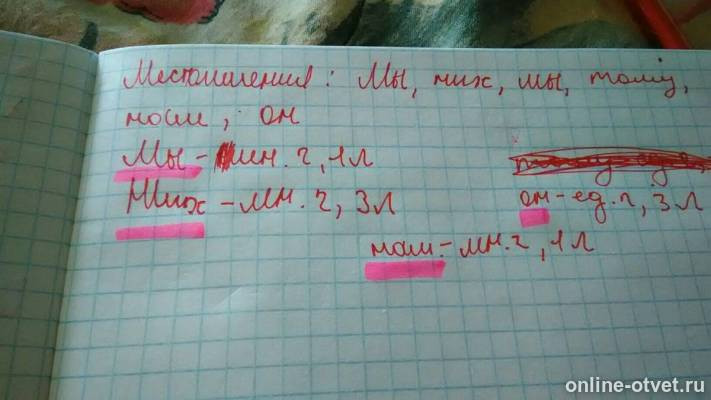 Местоимения: Мы, них, мы, тому,
нам, он
Мы - мн. ч, 1л
Них - мн. ч, 3л
он - ед. ч, 3л
нам - мн. ч, 1л
online-otvet.ru